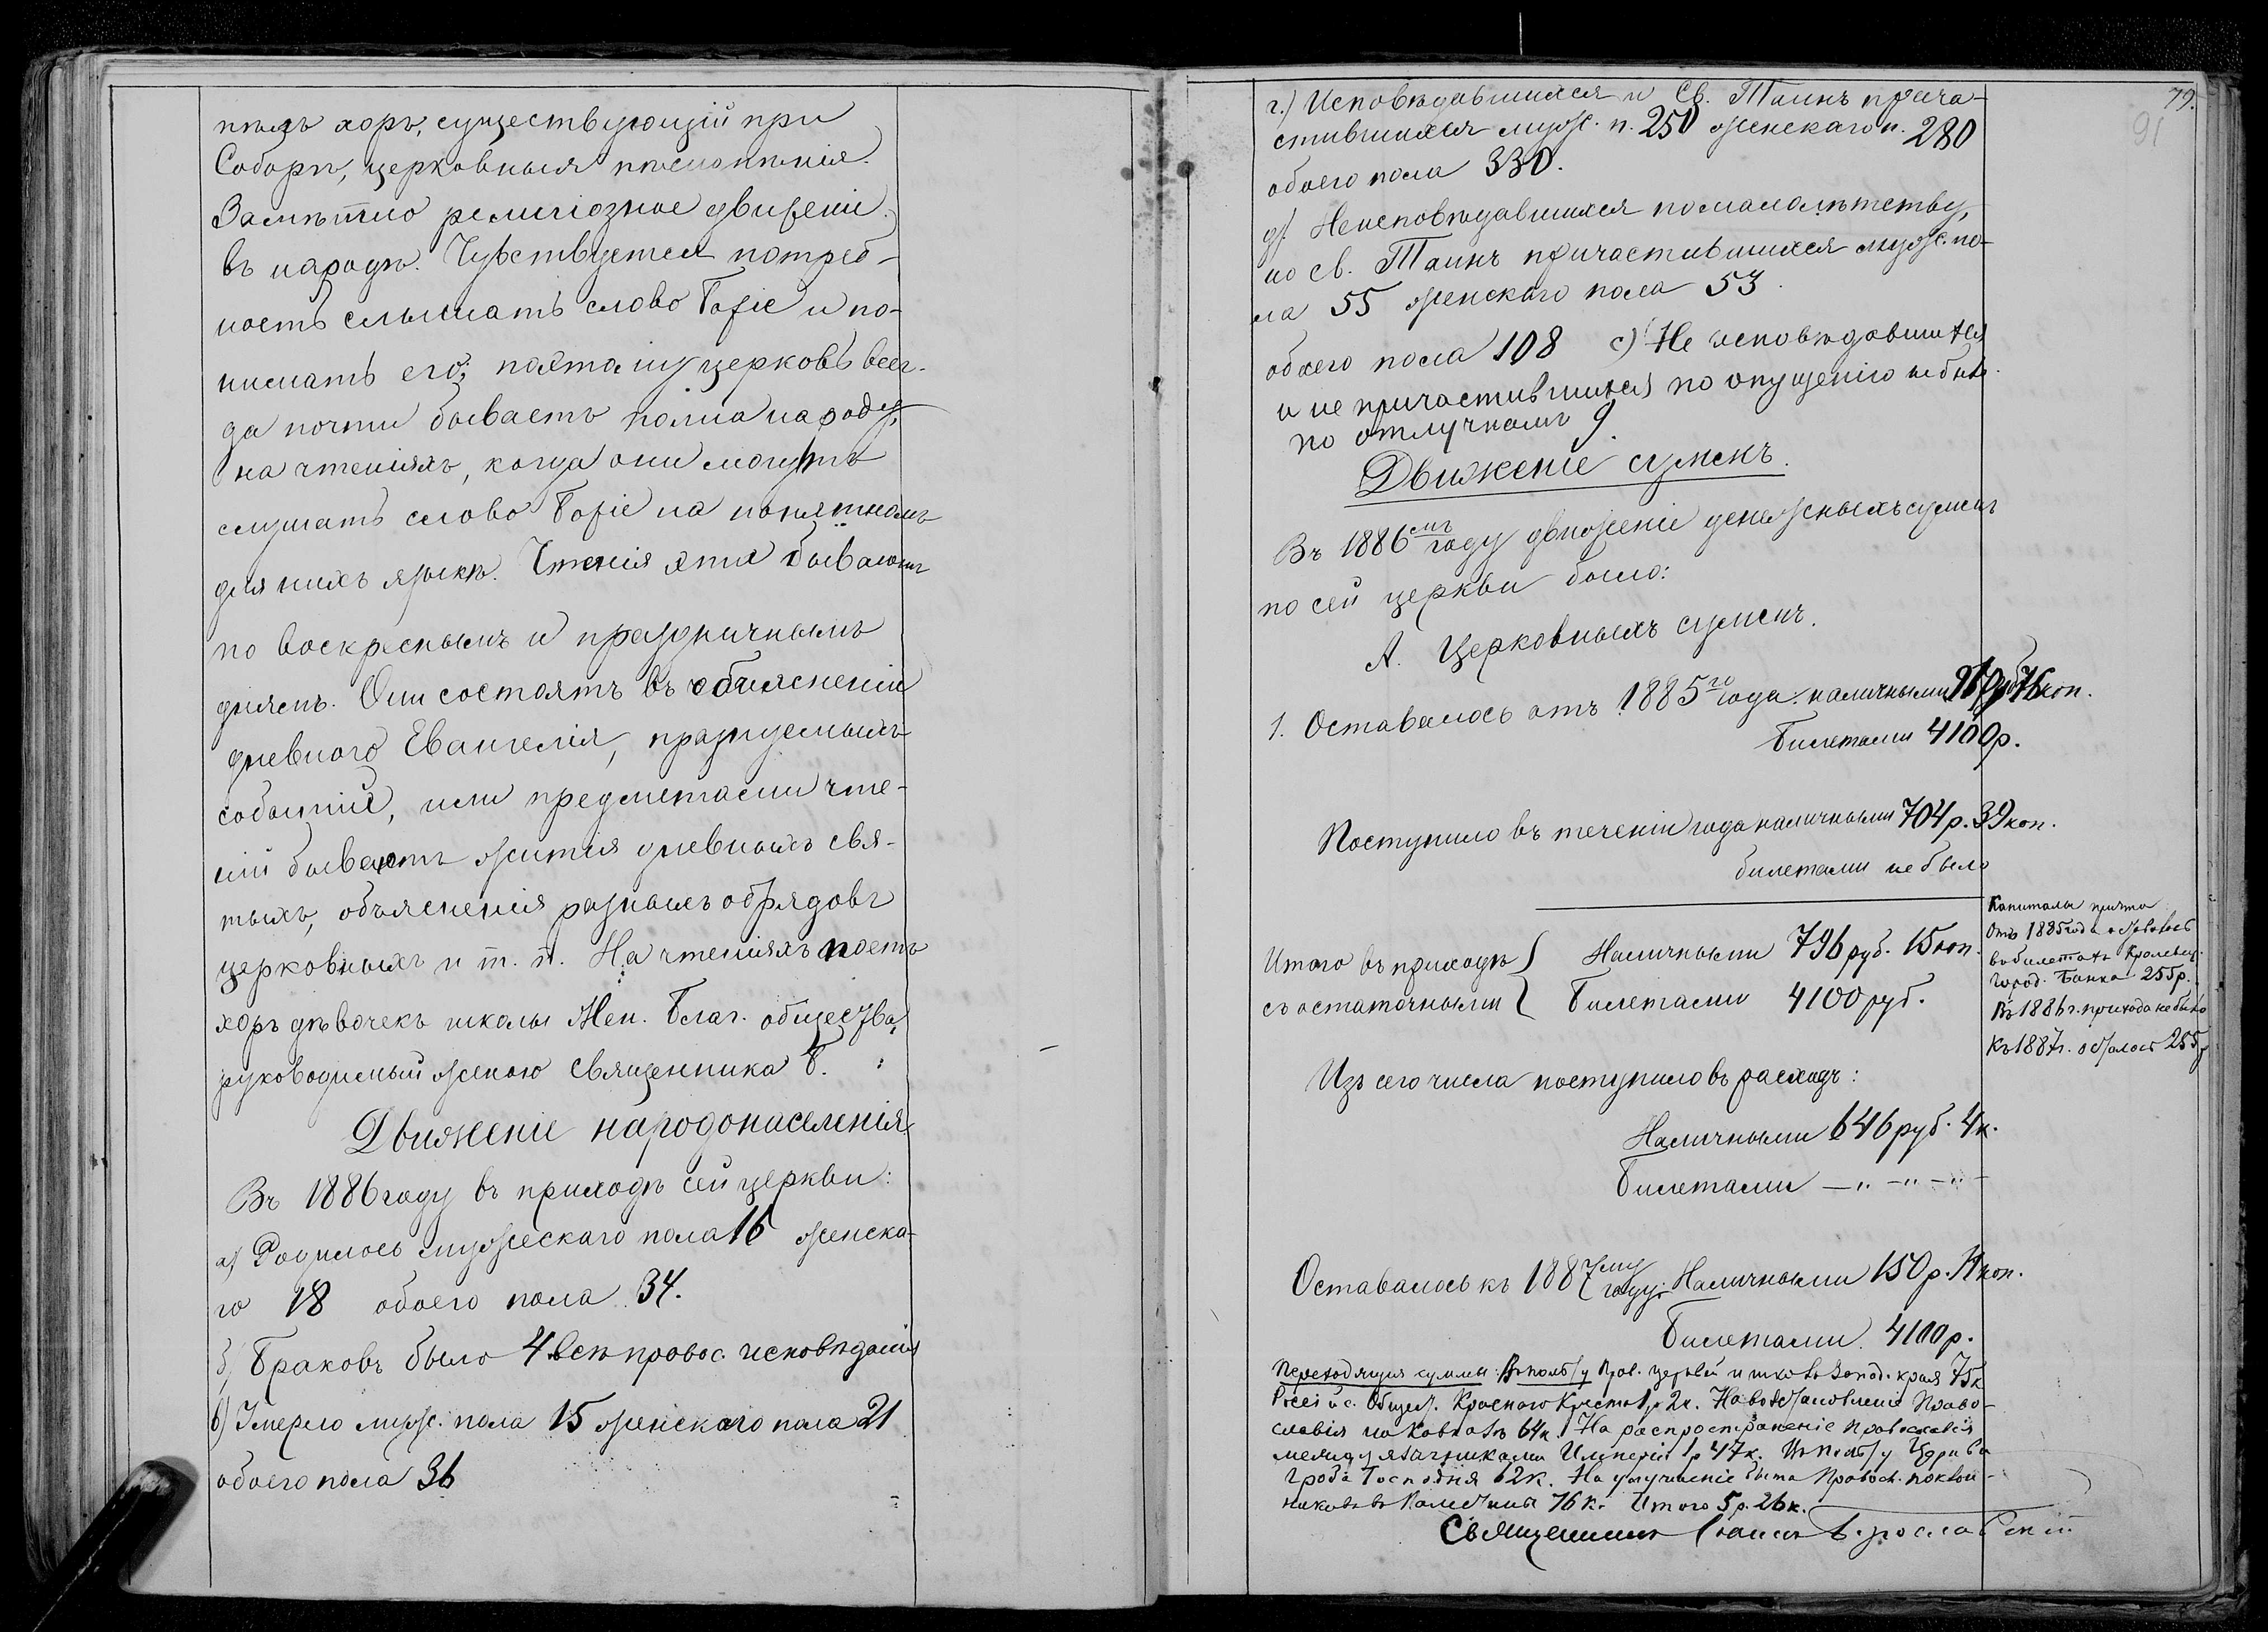 пѣлъ хоръ, существующій при
Соборѣ, церковныя пѣснопѣнія.
Замѣтно религіозное движеніе
въ народѣ. Чувствуется потреб-
ность слышать слово Божіе и по-
нимать его; поэтому церковь всег-
да почти бываетъ полна народу,
на чтеніяхъ, когда они могутъ
слушать слово Божіе на понятномъ
для нихъ языкѣ. Чтенія эти бываютъ
по воскреснымъ и праздничнымъ
днямъ. Они состоятъ въ объясненіи
дневного Евангелія, празнуемыхъ
событій, или предметами чте-
ній бываетъ житія дневныхъ свя-
тыхъ, объясненія разныхъ обрядовъ
церковныхъ и т. п. На чтеніяхъ поетъ
хоръ дѣвочекъ школы Жен. Благ. общества,
руководимый женою священника Б.
Движеніе народонаселенія.
Въ 1886 году въ приходѣ сей церкви:
а) Родилось мужескаго пола 16 женска-
го 18 обоего пола 34.
б) Браковъ было 4 всѣ провос. исповѣданія
в) Умерло муж. пола 15 женскаго пола 21
обоего пола 36
79.
91
г.) Исповѣдавшихся и Св. Таинъ прича-
стившихся муж. п. 250 женскаго п. 280
обоего пола 330.
д). Неисповѣдавшихся по малолѣтству,
но св. Таинъ причастившихся муж. по-
ла 55 женскаго пола 53.
обоего пола 108 е) Не исповѣдавшихся
и не причастившихся по опущенію не было
по отлучкамъ 9.
Движеніе суммъ.
Въ 1886мъ году движеніе денежныхъ суммъ
по сей церкви было:
А. Церковныхъ суммъ.
1. Оставалось отъ 1885го года наличными 91 руб 76 коп.
Билетами 4100 р.
Поступило въ теченіи года наличными 704 р. 39 коп.
билетами не было
Итого въ приходѣ } Наличными 796 руб. 15 коп.
съ остаточными } Билетами 4100 руб.
Капиталы
отъ 1885 года
въ билетахъ
Город. Банка 255 р.
Въ 1886 г. прихода не было
Къ 1887 г. осталось 255 р
Изъ сего числа поступило въ расходъ:
Наличными 646 руб. 4 к.
Билетами — „ — „ — „ —
Оставалось къ 1887му году: Наличными 150 р. 11 коп.
Билетами 4100 р.
Переходящія суммы: Въ пользу Прав. церквей и школъ Запад. края 75 к
Россійс. Общес. Краснаго Креста 1 р 2 к. На возстановленіе Право-
славія на Кавказѣ 64 к. На распространеніе Православія
между язычниками Имперіи 1 р 47 к. Въ пользу
Гроба Господня 62 к. На улучшеніе быта Правосл. поклон-
никовъ въ Палестинѣ 76 к. Итого 5 р. 26 к.
Священникъ Іоаннъ